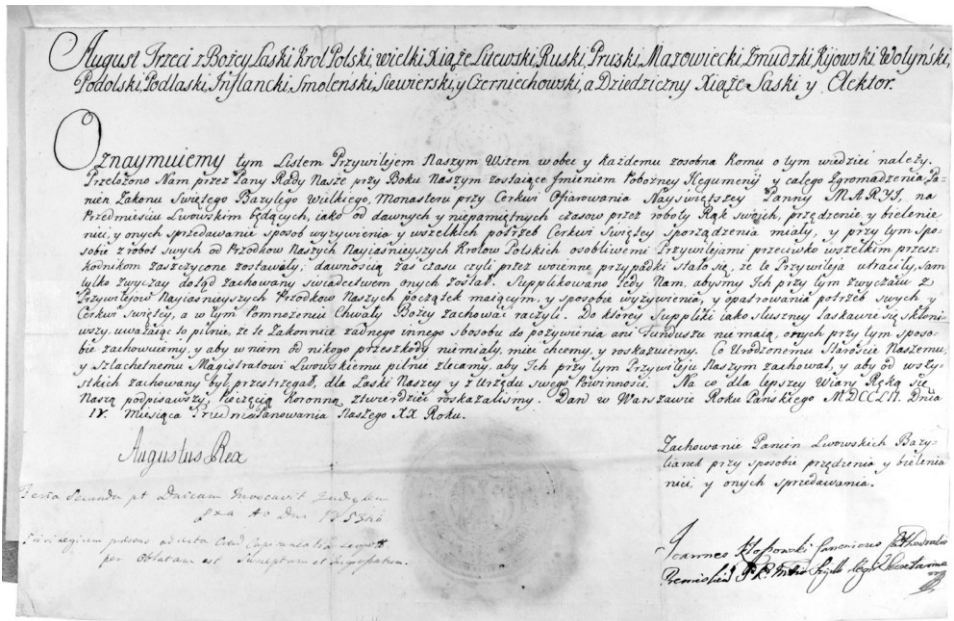 August Trzeci z Bożey Łaski Krol Polski, wielki Xiąże Litewski, Ruski, Pruski, Mazowiecki, Żmudzki, Kijowski, Wołyński,
Podolski, Podlaski, Inflancki, Smoleński, Siewierski, y Czerniechowski, a Dziedziczny Xiąże Saski y Elektor.
Oznaymuiemy tym Listem Przywilejem Naszym Wszem wobec y każdemu zosobna Komu o tym wiedzieć należy.
Przełożono Nam przez Pany Rady Nasze przy Boku Naszym zostaiące Imieniem Pobożney Hegumenij y całego Zgromadzenia Pa-
nien Zakonu Swiętego Bazylego Wielkiego, Monasteru przy Cerkwi Ofiarowania Nayświętszey Panny MARYI, na
Przedmieściu Lwowskim będących, iako od dawnych y niepamiętnych czasow przez roboty Rąk swojch, przędzenie, y bielenie
nici, y onych sprzedawanie sposob wyżywienia y wszelkich potrzeb Cerkwi Swiętey sporządzenia miały, y przy tym spo-
sobie z robot swych od Przodkow Naszych Nayiaśnieyszych Krolow Polskich osobliwemi Przywilejami przeciwko wszelkim przesz-
kodnikom zaszczycone zostawały; dawnością zaś czasu czyli przez woienne przypadki stało się, że te Przywileja utraciły, sam
tylko zwyczay dotąd zachowany świadectwem onych został. Supplikowano tedy Nam, abysmy Ich przy tym zwyczaiu z
Przywilejow Nayiaśnieyszych Przodkow Naszych początek maiącym, y sposobie wyżywienia, y opatrowania potrzeb swych y
Cerkwi Swiętey, a w tym Pomnożenie Chwały Bożey zachować raczyli. Do ktorey Suppliki iako słuszney łaskawie się skłoni-
wszy, uważaiąc to pilnie, że te Zakonnice żadnego innego sbosobu do pożywienia ani Funduszu nie maią, onych przy tym sposo-
bie zachowuiemy, y aby w niem od nikogo przeszkody niemiały, mieć chcemy, y roskazuiemy. Co Urodzonemu Staroście Naszemu,
y Szlachetnemu Magistratowi Lwowskiemu pilnie zlecamy, aby Ich przy tym Przywileju Naszym zachował, y aby od wszy-
stkich zachowany był, przestrzegał, dla Łaski Naszey y z Urzędu swego Powinności. Na co dla lepszey Wiary Ręką się
Naszą podpisawszy, Pieczęcią Koronną ztwierdzić roskazaliśmy. Dan w Warszawie Roku Pańskiego MDCCLII. Dnia
IV. Miesiąca Panowania Naszego XX Roku.
Augustus Rex
Zachowanie Panien Lwowskich Bazy-
lianek przy sposobie przędzenia y bielenia
nici, y onych sprzedawania.
Feria Secunda pt Dnicam Invocavit
A Dni 1753
Privilegium praesens ad Acta
per Oblatam est Susceptum et Ingrossatum.
Joannes